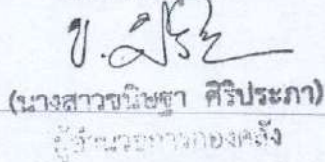 (นางสาวขนิษฐา ศิริประภา)
ผู้อำนวยการกองคลัง